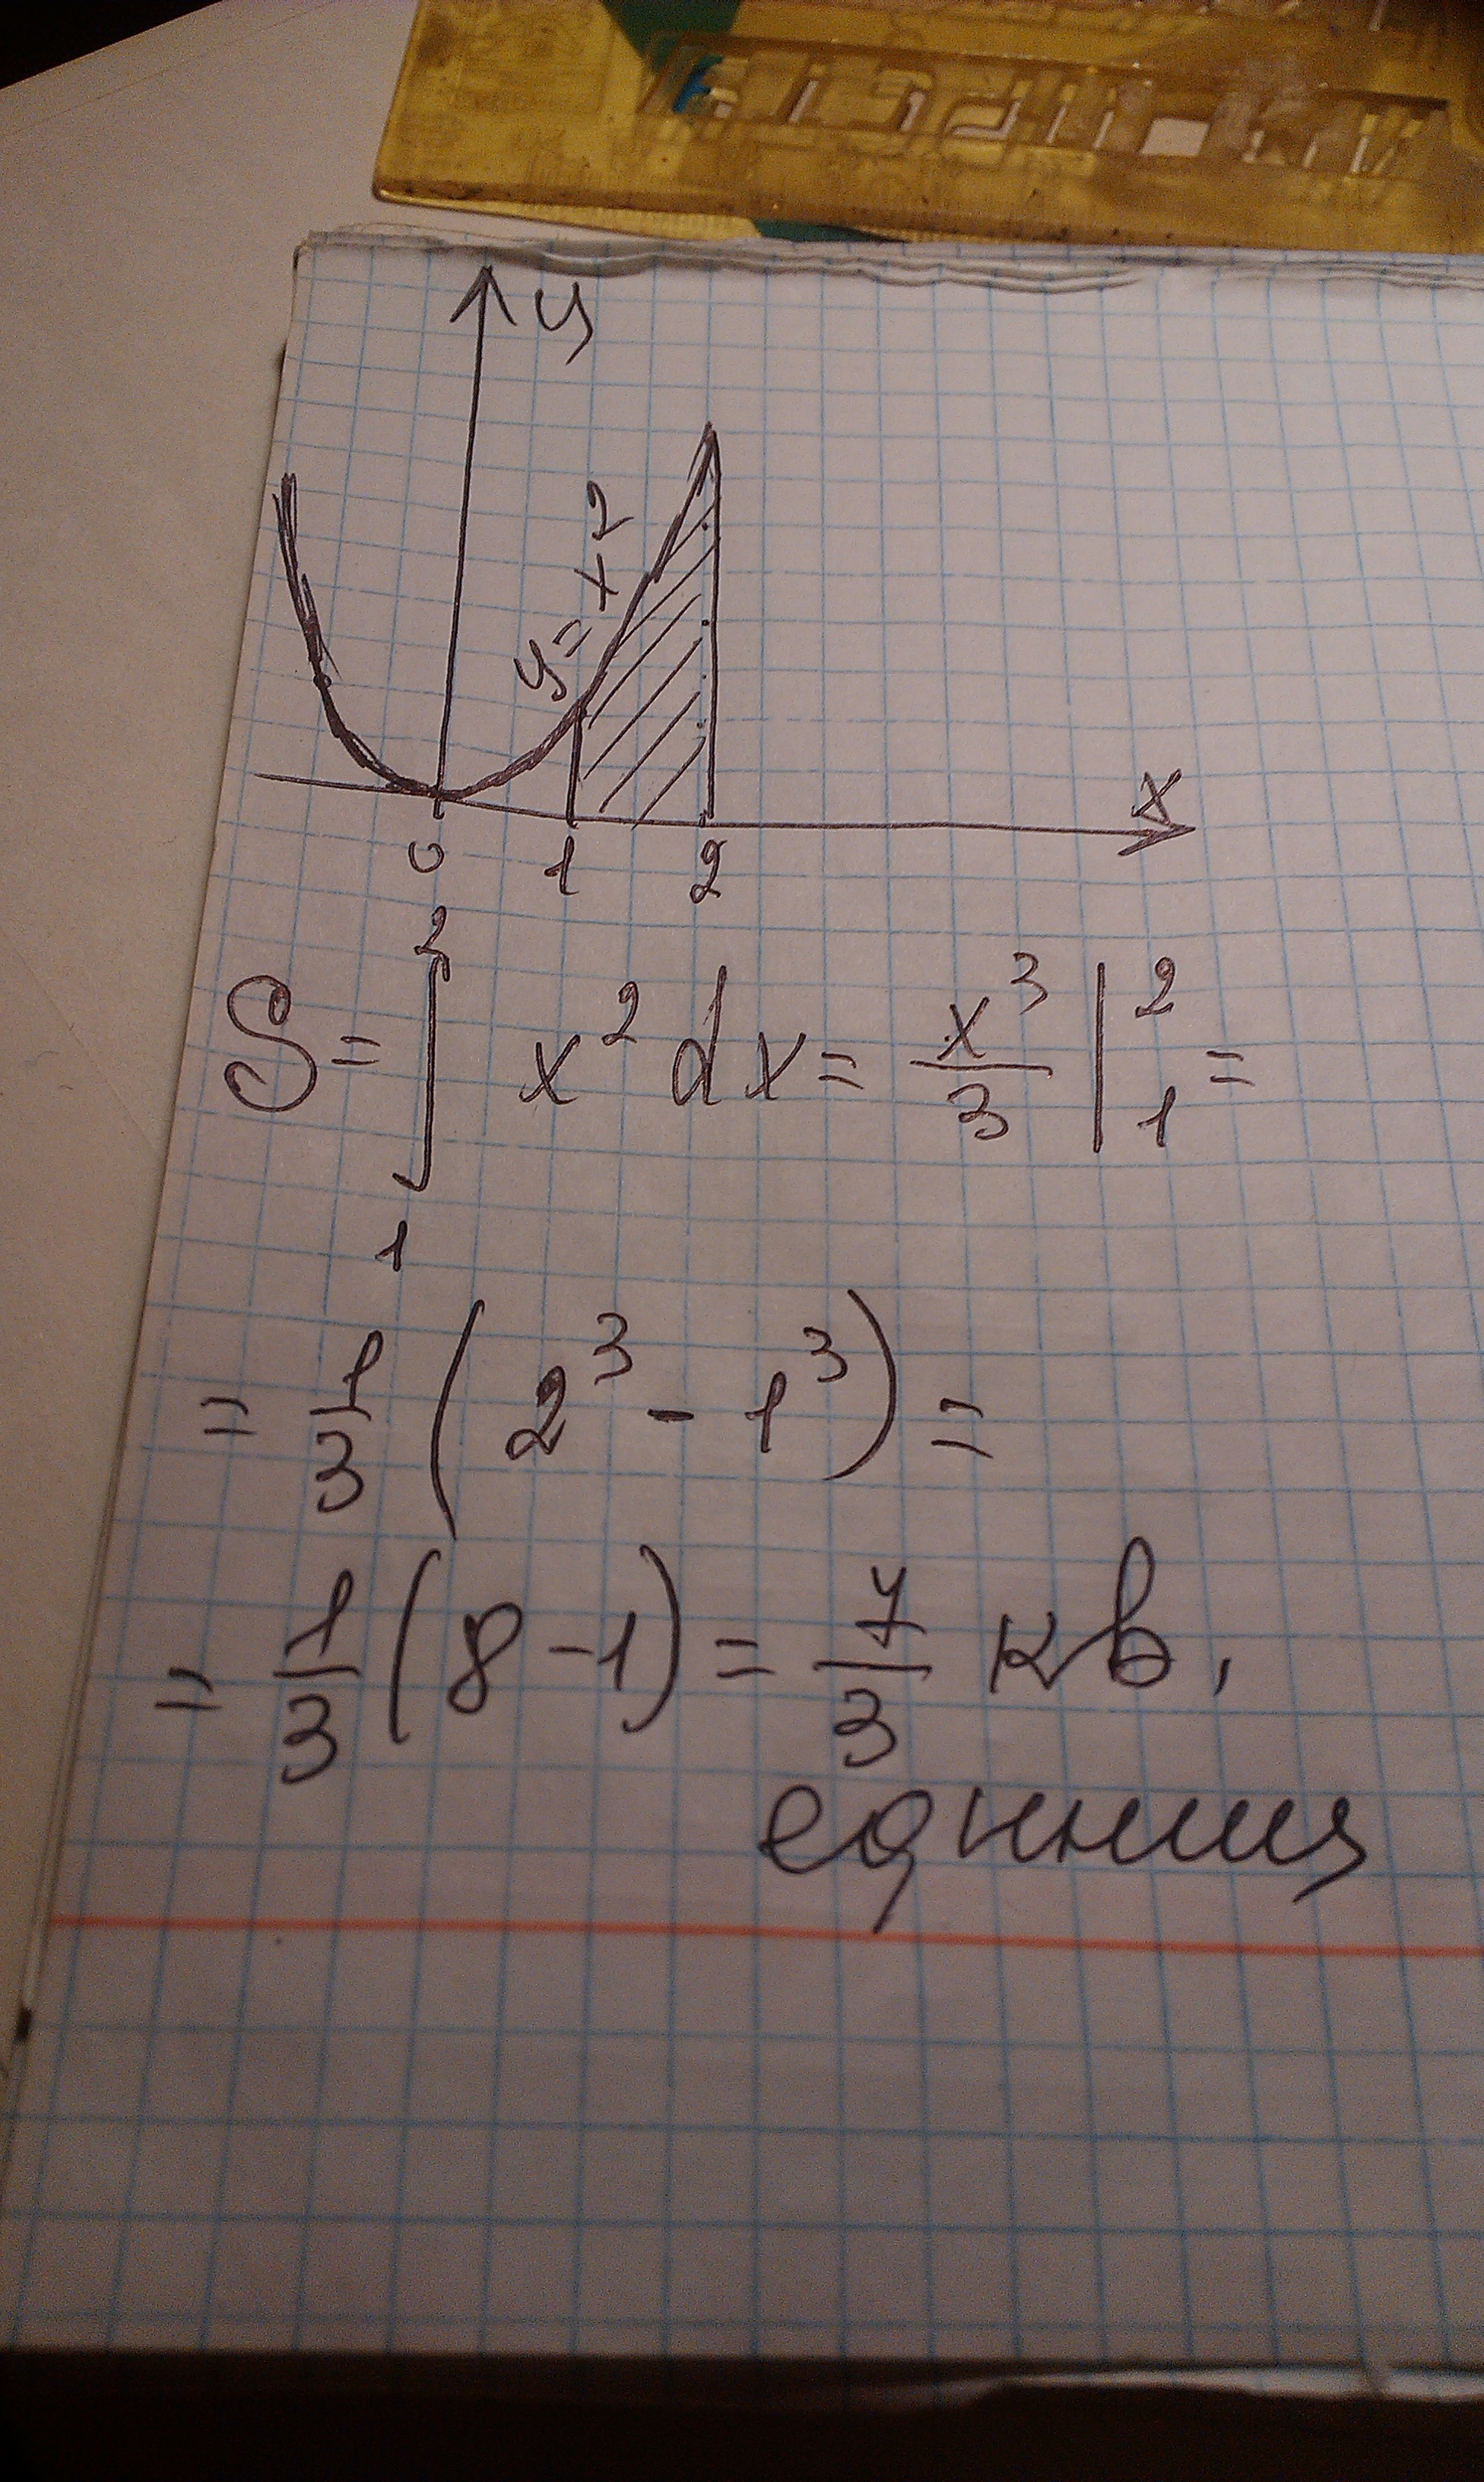 y
y = x²
x
0 1 2
S = ∫₁² x² dx = x³/3 |₁² =
= 1/3 (2³ - 1³) =
= 1/3 (8 - 1) = 7/3 кв.
единиц